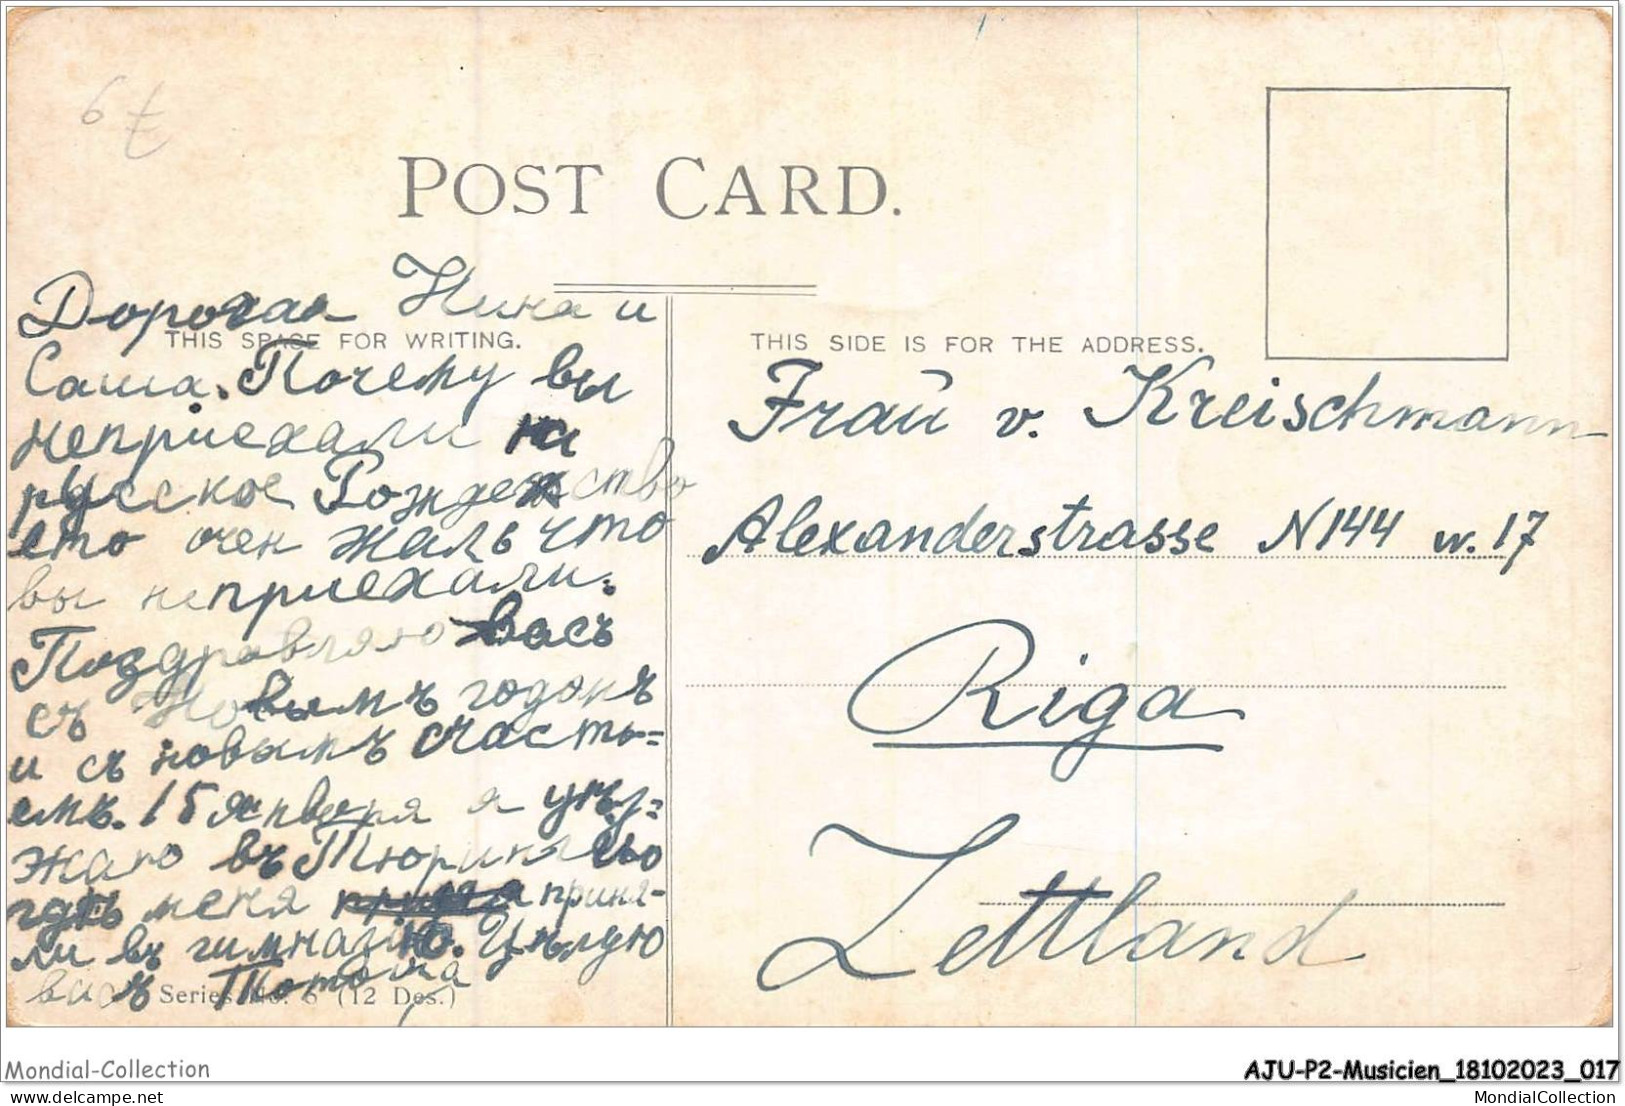 6 €
POST CARD.
Дорогая Нина и
THIS SPACE FOR WRITING.
Саша. Почему вы
неприехали на
русское Рождежство
ето очен жаль что
вы неприехали.
Поздравляю васъ
съ Новымъ годомъ
и съ новымъ счасть=
емъ. 15 января я уѣз=
жаю въ Тюрингію
гдѣ меня приня-
ли въ гимназію. Цѣлую
васъ
Series No. 6 (12 Des.)
THIS SIDE IS FOR THE ADDRESS.
Frau v. Kreischmann
Alexanderstrasse N144 w. 17
Riga
Lettland
Mondial-Collection
AJU-P2-Musicien_18102023_017
MondialCollection